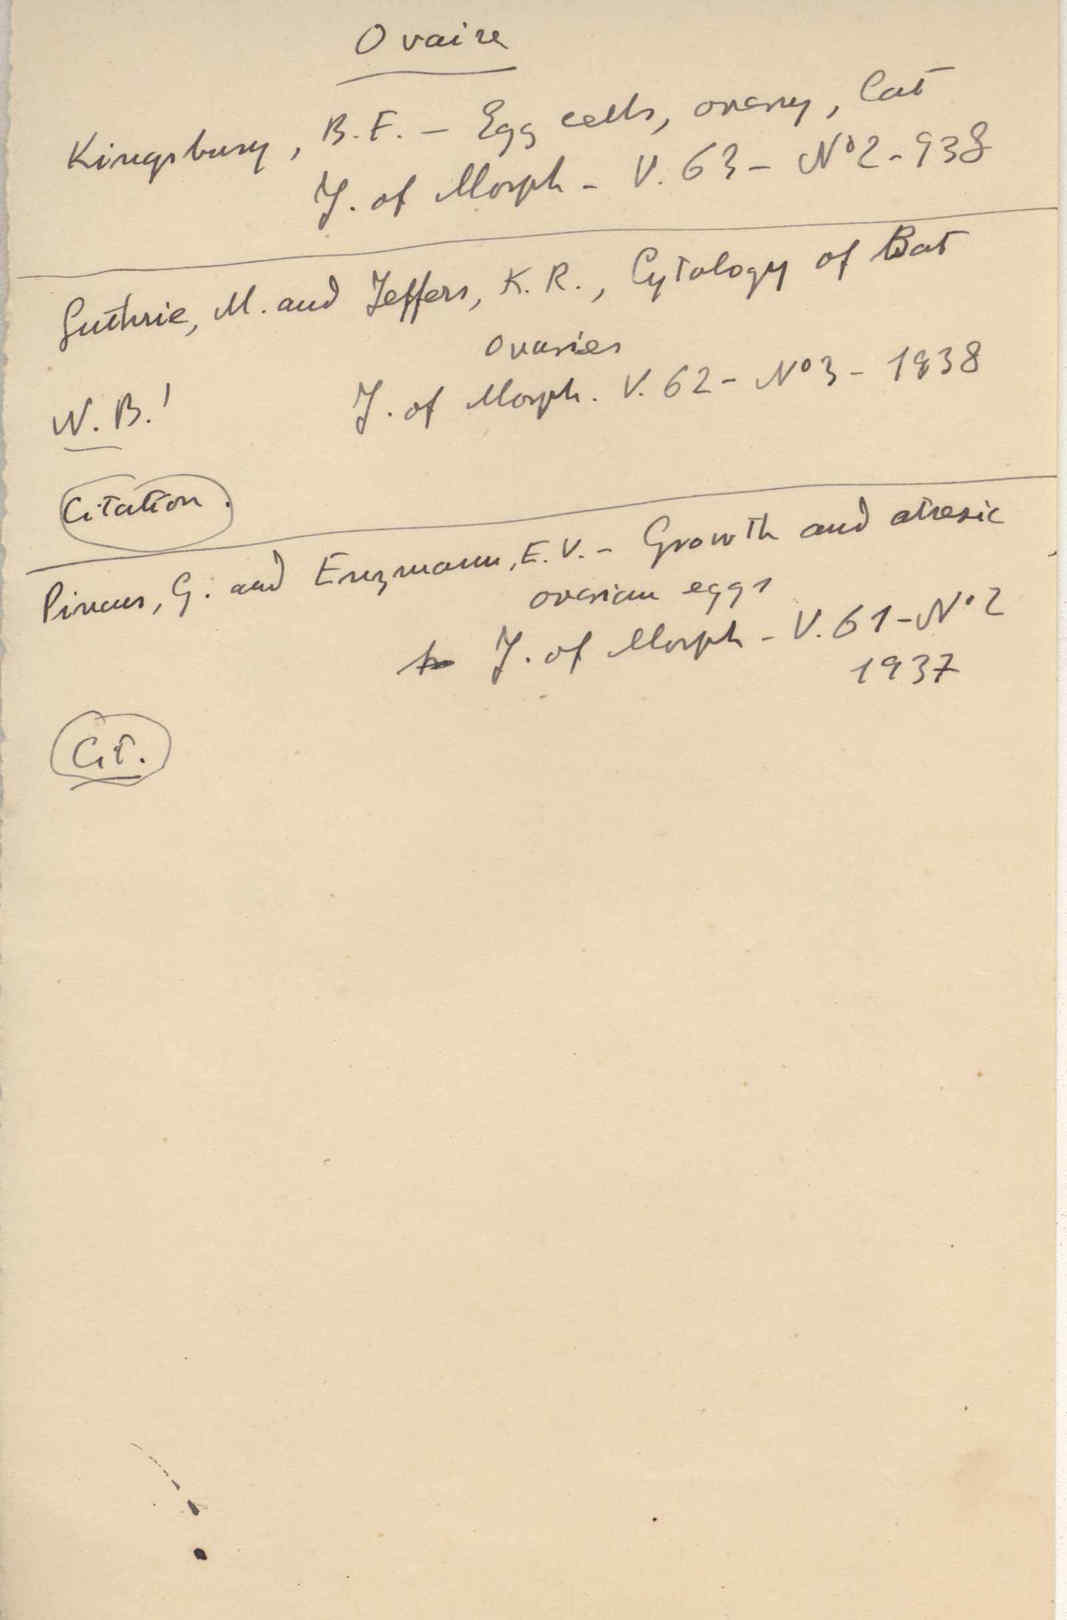 Ovaire
Kingsbury, B.F. - Egg cells, ovary, Cat
J. of Morph - V. 63 - No 2 - 938
Guthrie, M. and Jeffers, K.R., Cytology of Bat
ovaries
N.B.! J. of Morph. V. 62 - No 3 - 1938
Citation.
Pincus, G. and Enzmann, E.V. - Growth and atresic
ovarian eggs
J. of Morph - V. 61 - No 2
1937
Cit.